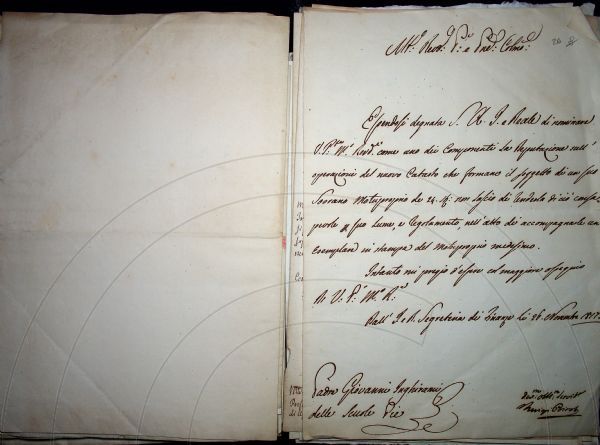 Mto. Revdo. Pre. e Pne. Colmo.
Essendosi degnata S. A. I. e Reale di nominare
V. P. M. Revda. come uno dei Componenti la Deputazione sull'
operazione del nuovo Catasto che formano il soggetto di un suo
Sovrano Motuproprio de 24. non lascio di renderla di ciò consa-
pevole per suo lume, e regolamento, nell'atto di accompagnarle un
Esemplare in stampa del Motuproprio medesimo.
Intanto mi pregio d'essere col maggiore ossequio
Di V. P. M. R.
Dall' I. e R. Segreteria di Finanze li 26 Novembre
Padre Giovanni Inghirami
delle Scuole Pie